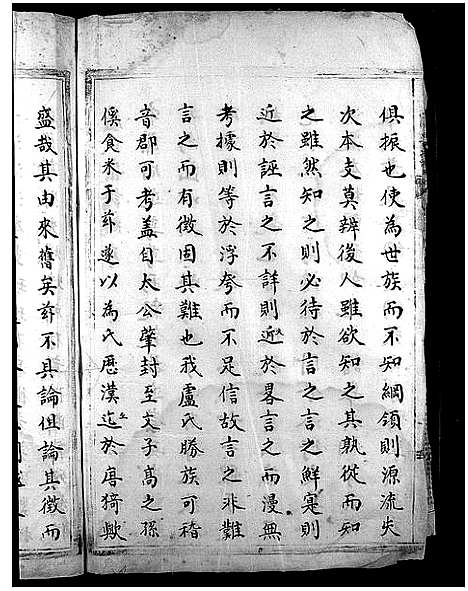 俱振也使為世族而不知綱領則源流失
次本支莫辨後人雖欲知之其孰從而知
之雖然知之則必待於言之言之鮮寔則
近於誣言之不詳則近於畧言之而漫無
考據則等於浮夸而不足信故言之非難
言之而有徵固其難也我盧氏勝族可稽
音郡可考盖自太公肇封至文子高之孫
傒食米于茲遂以為氏歷漢迄於唐猗歟
盛哉其由來舊矣茲不具論但論其徵而